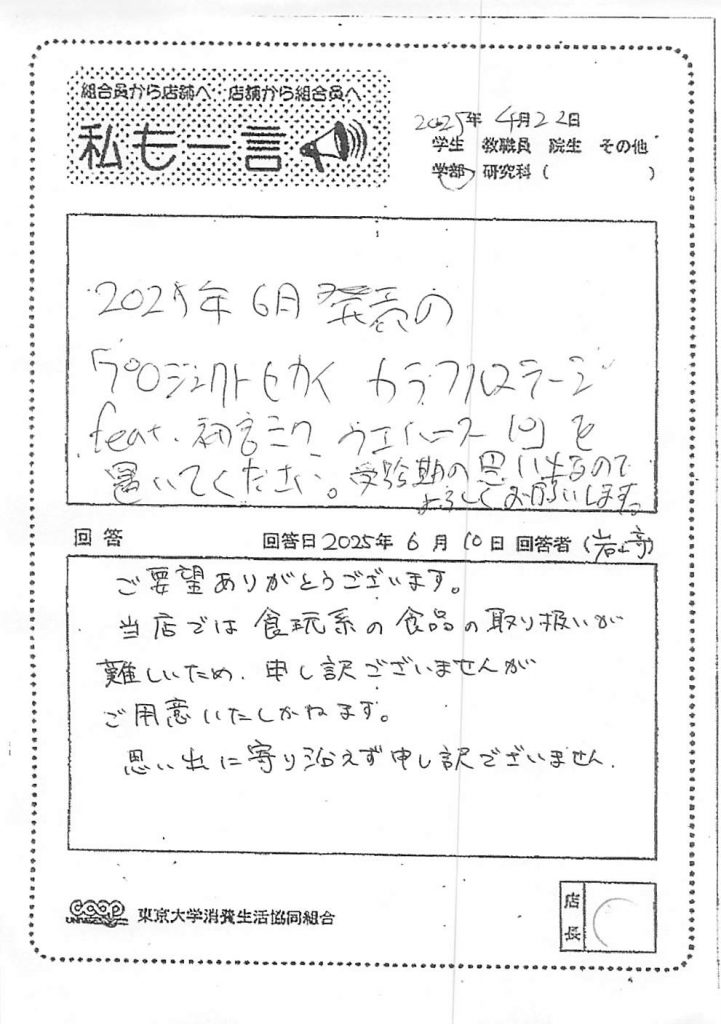 組合員から店舗へ 店舗から組合員へ
私も一言
2025年 4月22日
学生 教職員 院生 その他
学部 研究科( )
2025年6月発売の
「プロジェクトセカイ カラフルステージ
feat. 初音ミク ウエハース 10」を
置いてください。受験期の思い出なので
よろしくお願いします。
回答 回答日2025年 6月 10日 回答者(岩﨑)
ご要望ありがとうございます。
当店では食玩系の食品の取り扱いが
難しいため、申し訳ございませんが
ご用意いたしかねます。
思い出に寄り沿えず申し訳ございません.
COOP 東京大学消費生活協同組合
店長